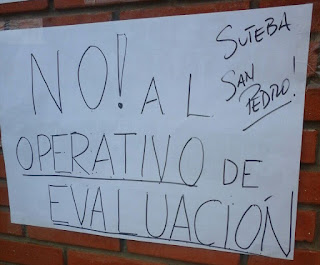 NO! AL
OPERATIVO DE
EVALUACIÓN
SUTEBA
SAN
PEDRO!